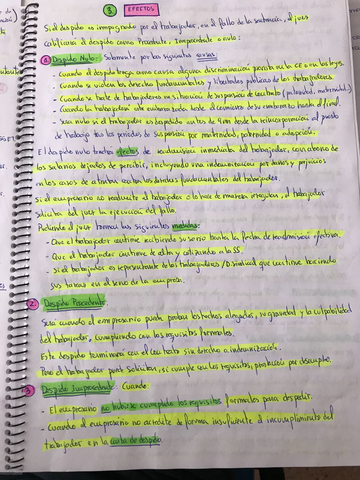 ③ EFECTOS
Si el despido es impugnado por el trabajador, en el fallo de la sentencia, el juez
calificará el despido como Procedente, Improcedente o nulo:
① Despido Nulo: Solamente por las siguientes causas
- Cuando el despido tenga como causa alguna discriminación prevista en la CE o en las leyes.
- Cuando se violen los derechos fundamentales y libertades públicas de los trabajadores.
- Cuando se trate de trabajadores en situación de suspensión de contrato (paternidad, maternidad)
- Cuando la trabajadora esté embarazada desde el comienzo de su embarazo hasta el final.
- Será nulo si el trabajador es despedido antes de 9 m desde la reincorporación al puesto
de trabajo tras los periodos de suspensión por maternidad, paternidad o adopción.
El despido nulo tendrá efectos de readmisión inmediata del trabajador, con abono de
los salarios dejados de percibir, incluyendo una indemnización por daños y perjuicios
en los casos de atentar contra los derechos fundamentales del trabajador.
Si el empresario no readmite al trabajador o lo hace de manera irregular, el trabajador
solicitará del juez la ejecución del fallo.
Pudiendo el juez tomar las siguientes medidas:
- Que el trabajador continúe recibiendo su salario hasta la fecha de readmisión efectiva.
- Que el trabajador continúe de alta y cotizando a la SS.
- Si el trabajador es representante de los trabajadores o sindical que continúe haciendo
sus tareas en el seno de la empresa.
② Despido Procedente:
Será cuando el empresario pueda probar los hechos alegados, su gravedad y la culpabilidad
del trabajador, cumpliendo con los requisitos formales.
Este despido terminará con el contrato sin derecho a indemnización.
Pero el trabajador podrá solicitar, si cumple con los requisitos, prestación por desempleo.
③ Despido Improcedente: Cuando:
- El empresario no hubiese cumplido los requisitos formales para despedir.
- Cuando el empresario no acredite de forma insuficiente el incumplimiento del
trabajador en la carta de despido.